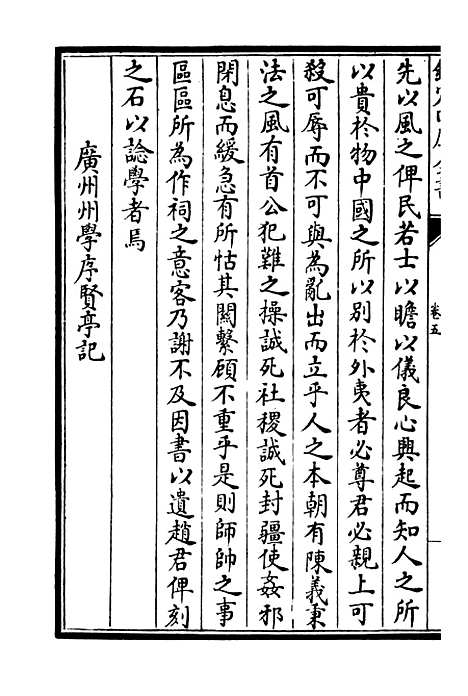 卷五
先以風之俾民若士以瞻以儀良心興起而知人之所
以貴於物中國之所以别於外夷者必尊君必親上可
殺可辱而不可與為亂出而立乎人之本朝有陳義秉
法之風有首公犯難之操誠死社稷誠死封疆使姦邪
閉息而緩急有所怙其關繫顧不重乎是則師帥之事
區區所為作祠之意客乃謝不及因書以遺趙君俾刻
之石以諗學者焉
廣州州學序賢亭記